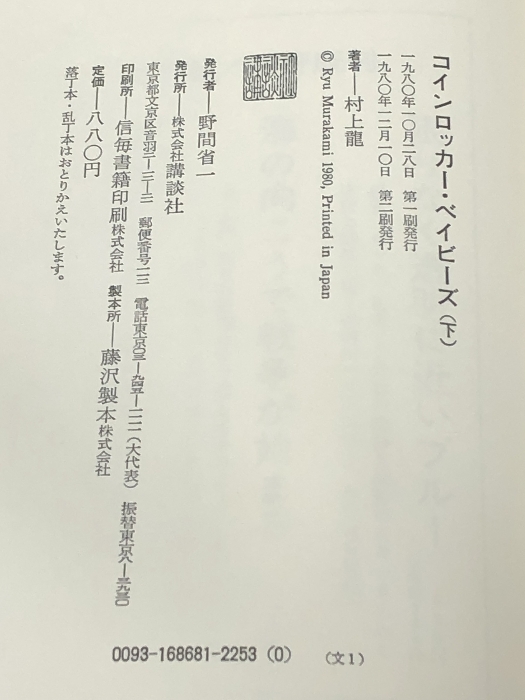 コインロッカー・ベイビーズ(下)
一九八〇年一〇月二八日 第一刷発行
一九八〇年一二月一〇日 第二刷発行
著者——村上龍
© Ryu Murakami 1980, Printed in Japan
発行者——野間省一
発行所——株式会社講談社
東京都文京区音羽二—一二—二一 郵便番号一一二 電話東京〇三—九四五—一一一一(大代表) 振替東京八—三九三〇
印刷所——信毎書籍印刷株式会社 製本所——藤沢製本株式会社
定価——八八〇円
落丁本・乱丁本はおとりかえいたします。
0093-168681-2253 (0) (文1)